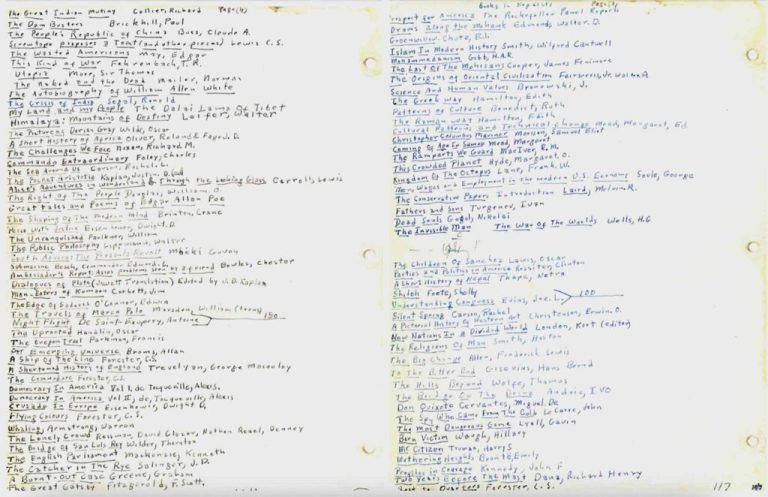 The Great Indian Mutiny Collier, Richard Page (4)
The Dam Busters Brickhill, Paul
The People's Republic of China Buss, Claude A.
Screwtape proposes a Toast (and other pieces) Lewis C.S.
The Wasted Americans May, Edgar
This Kind of War Fehrenbach, T.R.
Utopia More, Sir Thomas
The Naked and the Dead Mailer, Norman
The Autobiography of William Allen White
The Crisis of India Segal, Ronald
My Land and my People The Dalai Lama Of Tibet
Himalaya: Mountains of Destiny Laifer, Walter
The Picture of Dorian Gray Wilde, Oscar
A Short History of Africa Oliver, Roland & Fage J. D.
The Challenges We Face Nixon, Richard M.
Commando Extraordinary Foley, Charles
The Sea Around Us Carson, Rachel L.
The Pocket Aristotle Kaplan, Justin D.
Alice's Adventures in Wonderland & Through the Looking Glass Carroll, Lewis
The Right of The People Douglas, William O.
Great tales and Poems of Edgar Allan Poe
The Shaping Of The Modern Mind Brinton, Crane
Eisenhower, Dwight D.
The Unvanquished Faulkner, William
The Public Philosophy Lippmann, Walter
South Africa: The Peasants Revolt Mbeki Govan
Submarine Beach, Commander Edward L.
Ambassador's Report: Asia's problems seen by a friend Bowles, Chester
Dialogues of Plato (Jowett Translation) Edited by J. D. Kaplan
Man-Eaters of Kumaon Corbett, Jim
The Edge of Sadness O'Connor, Edwin
The Travels of Marco Polo Marsden, William (trans)
Night Flight De Saint-Exupery, Antoine 150
The Uprooted Handlin, Oscar
The Oregon Trail Parkman, Francis
Our Emerging Universe Broms, Allan
A Ship Of The Line Forester, C.S.
A Shortened History of England Trevelyan, George Macauley
The Commodore Forester, C.S.
Democracy In America Vol I, de Tocqueville, Alexis.
Democracy in America Vol II, de Tocqueville, Alexis
Crusade In Europe Eisenhower, Dwight D.
Flying Colours Forester, C.S.
Whaling, Armstrong, Warren
The Lonely Crowd Riesman, David Glazer, Nathan Reuel, Denney
The Bridge of San Luis Rey Wilder, Thornton
The English Parliament Mackenzie, Kenneth
The Catcher in The Rye Salinger, J.D.
A Burnt-Out Case Greene, Graham
The Great Gatsby Fitzgerald, F. Scott.
Books in Page (5)
Prospect for America The Rockefeller Panel Reports
Drums Along the Mohawk Edmonds, Walter. D.
Greenwillow Chute, B.J.
Islam In Modern History Smith, Wilfred Cantwell
Mohammedanism Gibb, H.A.R.
The Last Of The Mohicans Cooper, James Fenimore
The Origins of Oriental Civilization Fairservis, Jr. Walter A
Science And Human Values Bronowski, J.
The Greek Way Hamilton, Edith
Patterns of Culture Benedict, Ruth
The Roman Way Hamilton, Edith
Cultural Patterns and Technical Change Mead, Margaret, Ed
Christopher Columbus Mariner Morison, Samuel Eliot
Coming of Age In Samoa Mead, Margaret
The Ramparts We Guard MacIver, R. M.
This Crowded Planet Hyde, Margaret. O.
Kingdom Of The Octopus Lane, Frank. W.
Men, Wages and Employment in the modern U.S. Economy Soule, George
The Conservative Papers Introduction Laird, Melvin R.
Fathers and Sons Turgenev, Ivan
Dead Souls Gogol, Nikolai
The Invisible Man The War Of The Worlds Wells, H.G
The Children Of Sanchez Lewis, Oscar
Parties and Politics in America Rossiter, Clinton
A Short History of Nepal Thapa, Netra
Shiloh Foote, Shelby
Understanding Congress Evins, Joe. L. 100
Silent Spring Carson, Rachel
A Pictorial History of Western Art Christensen, Erwin O.
New Nations In A Divided World London, Kurt (editor)
The Religions Of Man Smith, Huston
The Big Change Allen, Frederick Lewis
To The Bitter End Gisevius, Hans Bernd
The Hills Beyond Wolfe, Thomas
The Bridge On The Drina Andric, IVO
Don Quixote Cervantes, Miguel De
The Spy Who Came From The Cold Le Carre, John
The Most Dangerous Game Lyall, Gavin
Born Victim Waugh, Hillary
Mr Citizen Truman, Harry S
Wuthering Heights Brontë, Emily
Profiles in Courage Kennedy, John F
Two Years Before The Mast Dana, Richard Henry
Forester, C.S.
117